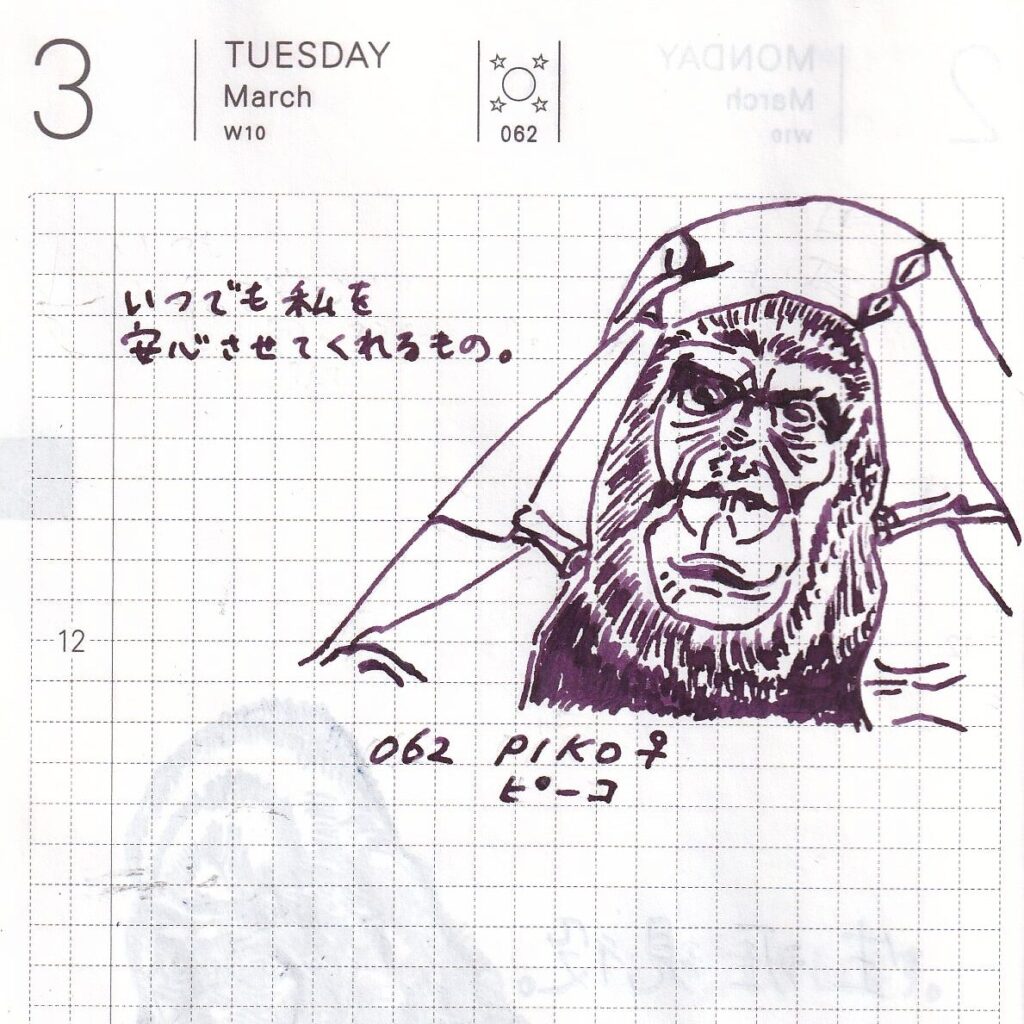 3
TUESDAY
March
W10
062
いつでも私を
安心させてくれるもの。
12
062 PIKO♀
ピーコ